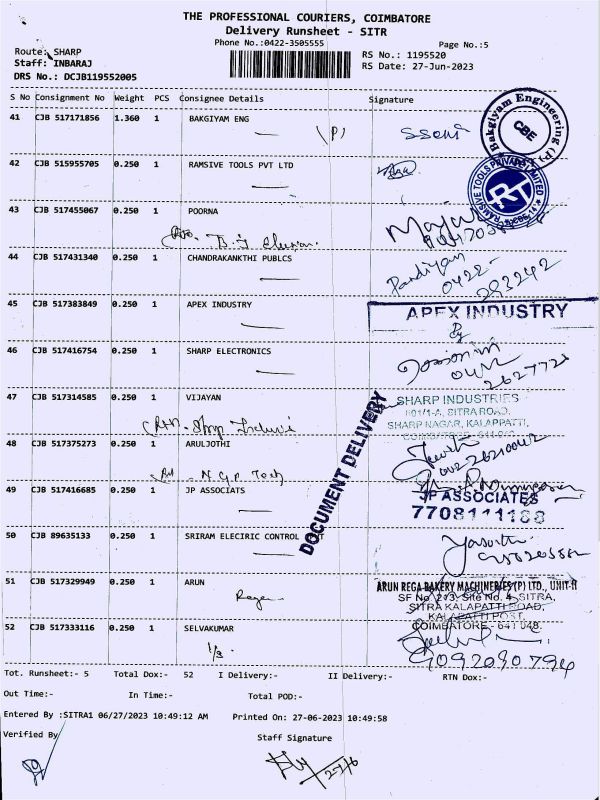 THE PROFESSIONAL COURIERS, COIMBATORE
Delivery Runsheet - SITR
Phone No.:0422-3505555
Page No.:5
Route: SHARP
Staff: INBARAJ
DRS No.: DCJB119552005
RS No.: 1195520
RS Date: 27-Jun-2023
S No Consignment No Weight PCS Consignee Details Signature
41 CJB 517171856 1.360 1 BAKGIYAM ENG
(P)
Bakgiyam Engineering (P)
CBE
42 CJB 515955705 0.250 1 RAMSIVE TOOLS PVT LTD
RAMSIVE TOOLS PRIVATE LIMITED
RT
43 CJB 517455067 0.250 1 POORNA
44 CJB 517431340 0.250 1 CHANDRAKANKTHI PUBLCS
Pandiyan
0422-
293242
45 CJB 517383849 0.250 1 APEX INDUSTRY
APEX INDUSTRY
46 CJB 517416754 0.250 1 SHARP ELECTRONICS
47 CJB 517314585 0.250 1 VIJAYAN
SHARP INDUSTRIES
601/1-A, SITRA ROAD,
SHARP NAGAR, KALAPPATTI,
DOCUMENT DELIVERY
48 CJB 517375273 0.250 1 ARULJOTHI
N.G.P. Tech
49 CJB 517416685 0.250 1 JP ASSOCIATS
JP ASSOCIATES
7708111188
50 CJB 89635133 0.250 1 SRIRAM ELECIRIC CONTROL
51 CJB 517329949 0.250 1 ARUN
ARUN REGA BAKERY MACHINERIES (P) LTD., UNIT-II
SF No. 213, Site No. 4, SITRA,
SITRA KALAPATTI ROAD,
KALAPATTI POST,
COIMBATORE - 641 048.
52 CJB 517333116 0.250 1 SELVAKUMAR
9092090794
Tot. Runsheet:- 5 Total Dox:- 52 I Delivery:- II Delivery:- RTN Dox:-
Out Time:- In Time:- Total POD:-
Entered By :SITRA1 06/27/2023 10:49:12 AM Printed On: 27-06-2023 10:49:58
Verified By Staff Signature
27/6